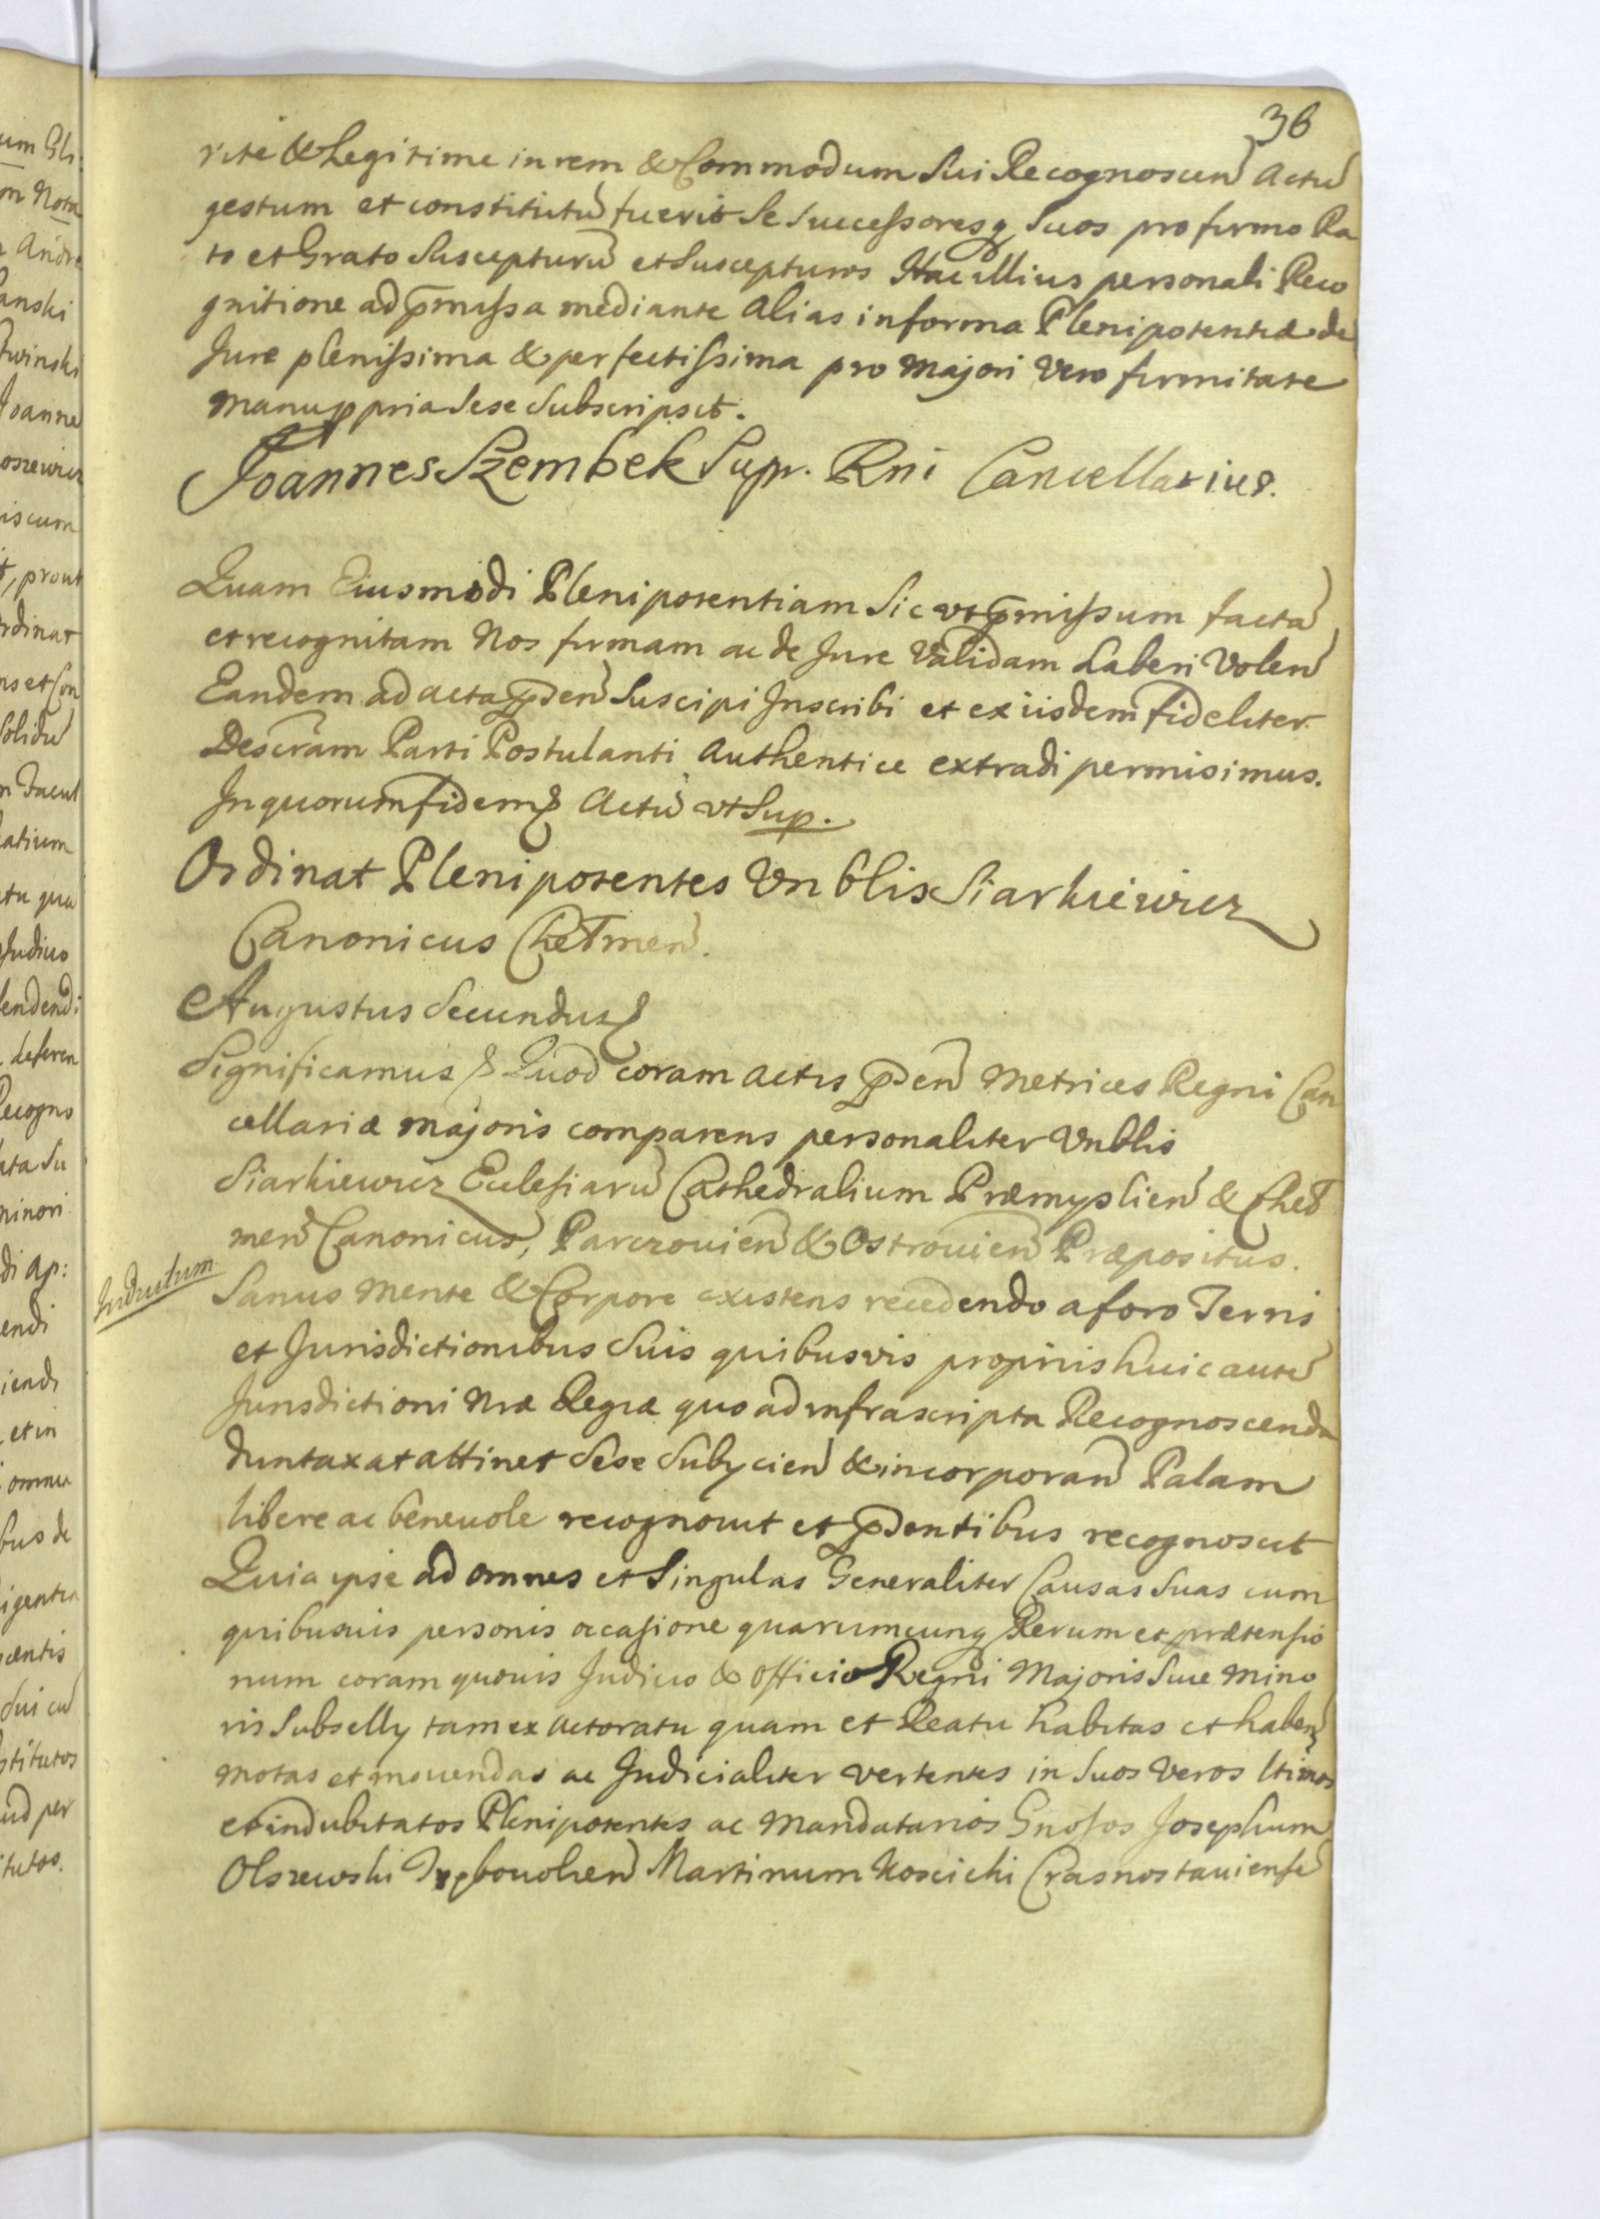 36
rite & Legitime in rem & Commodum Sui Recognoscen̄ Actū
gestum et constitutū fuerit Se Successoresq Suos pro firmo Ra
to et Grato Suscepturū et Suscepturos Hac illius personali Reco
gnitione ad p̄missa mediante Alias in forma Plenipotentiæ de
Jure plenissima & perfectissima pro Majori Vero firmitate
Manu ppria Sese Subscripsit.
Joannes Szembek Supr. Rni Cancellarius.
Quam Eiusmodi Plenipotentiam Sic ut p̄missum factā
et recognitam Nos firmam ac de Jure Validam haberi Volen̄
Eandem ad acta p̄den̄ Suscipi Inscribi et ex iisdem fideliter
Descr̄am Parti Postulanti Authentice extradi permisimus.
In quorum fidem Actū ut Sup.
Ordinat Plenipotentes Vnblis Siarkiewicz
Canonicus Chełmen̄.
Augustus Secundus
Significamus Quod coram Actis p̄den̄ Metrices Regni Can
cellariæ Majoris comparens personaliter Vnblis
Siarkiewicz Ecclesiarū Cathedralium Præmyslien̄ & Cheł
men̄ Canonicus, Parczouien̄ & Ostrouien̄ Præpositus.
Indutum
Sanus Mente & Corpore existens recedendo a foro Terris
et Jurisdictionibus Suis quibusvis proprijs huic autē
Jurisdictioni Nræ Regiæ quo ad infrascripta Recognoscenda
duntaxat attinet Sese Subijcien̄ & incorporan̄ Palam
libere ac beneuole recognouit et p̄dentibus recognoscit
Quia ipse ad omnes et Singulas Generaliter Causas Suas cum
quibusuis personis occasione quarumcunq Rerum et prætensio
num coram quouis Judicio & Officio Regni Majoris Siue Mino
ris Subsellij tam ex Actoratu quam et Reatu habitas et haben̄
Motas et mouendas ac Judicialiter vertentes in Suos Veros ltimos
et indubitatos Plenipotentes ac Mandatarios Gnosos Josephum
Olszewski Martinum Koscicki Crasnostauiensē